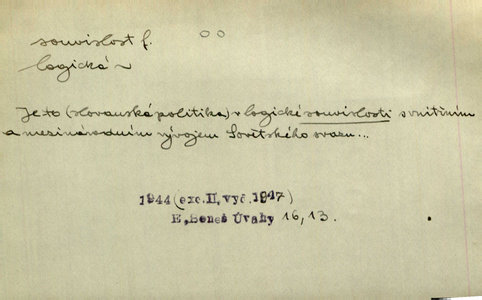 souvislost f.
logická ~
Je to (slovanská politika) v logické souvislosti s vnitřním
a mezinárodním vývojem Sovětského svazu...
1944 (exc. II, vyč. 1947)
E. Beneš Úvahy 16, 13.